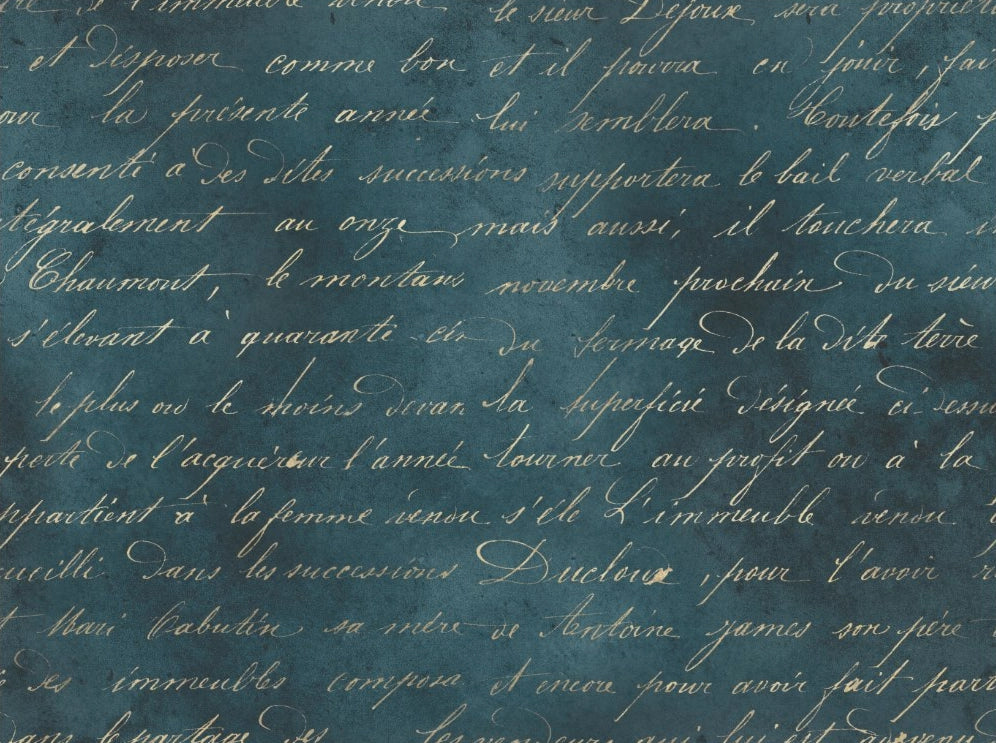 de l'immeuble vendu le sieur Dejoux sera propriét
et disposer comme bon et il pourra en jouir, fai
our la présente année lui semblera. Toutefois p
consenti à des dites successions supportera le bail verbal
tégralement au onze mais aussi, il touchera i
Chaumont, le montans novembre prochain du sieu
s'élevant à quarante cin du fermage de la dite terre
le plus ou le moins devan la superficie désignée ci dessu
perte de l'acquéreur l'année tourner au profit ou à la
ppartient à la femme vendu s'éle L'immeuble vendu
ueilli dans les successions Ducloux, pour l'avoir r
Mari Cabutin sa mère de Antoine James son père
des immeubles composa et encore pour avoir fait part
dans le partage des les vendeurs qui lui est advenu